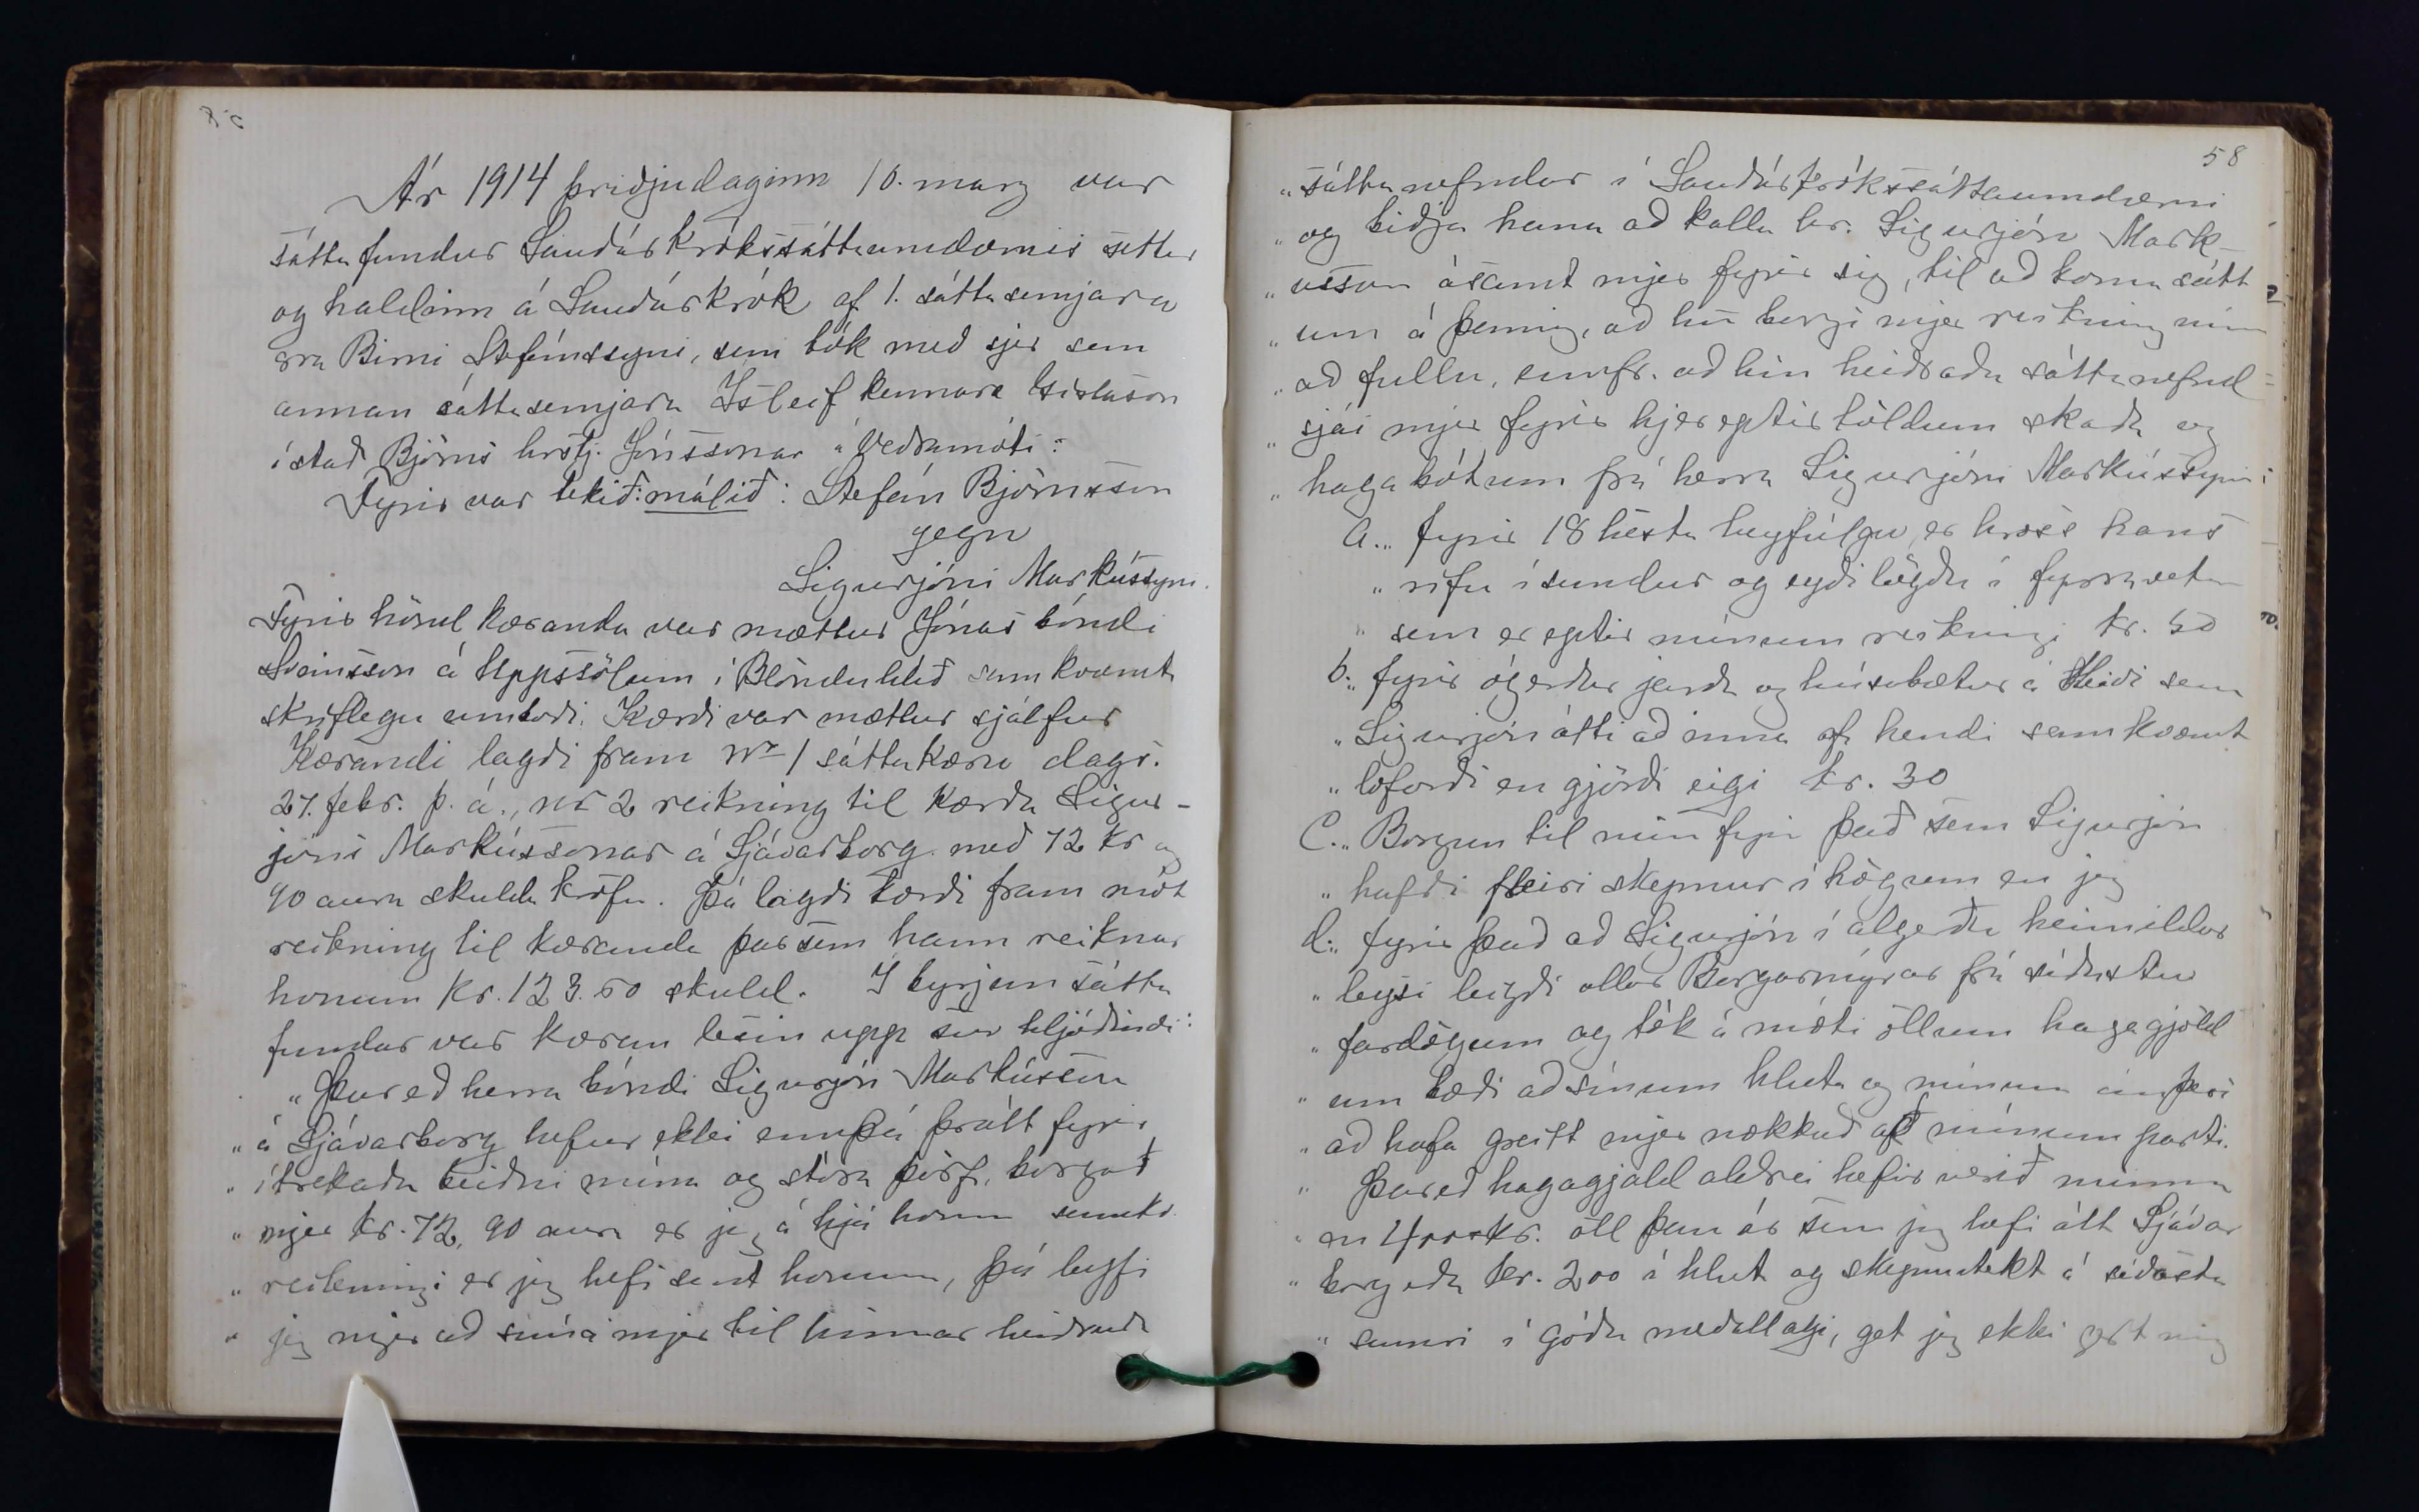 Ár 1914 þriðjudaginn 10. marz var
sáttafundur Sauðárkrókssáttaumdæmis settur
og haldinn á Sauðárkrók af 1. sáttasemjara
sra Birni Stefánssyni, sem tók með sjer sem
annan sáttasemjara Ísleif kennara Gíslason
í stað Björns hrstj. Jónssonar á Veðramóti:
Fyrir var tekið: málið: Stefán Björnsson
gegn
Sigurjóni Markússyni.
Fyrir hönd kæranda var mættur Jónas bóndi
Sveinsson á Uppssölum í Blönduhlíð samkvæmt
skriflegu umboði. Kærði var mættur sjálfur
Kærandi lagði fram Nr 1 sáttakæru dags.
27. febr. þ. á., nr 2 reikning til kærða Sigur-
jóns Markússonar á Sjávarborg með 72 kr og
90 aura skulda kröfu. Þá lagði kærði fram mót
reikning til kæranda þarsem hann reiknar
honum kr. 123.50 skuld. Í byrjun sátta
fundar var kæran lesin upp svo hljóðandi:
„Þareð herra bóndi Sigurjón Markússon
„ á Sjávarborg hefur ekki ennþá þrátt fyrir
„ ítrekaða beiðni mína og stóra þörf, borgað
„ mjer kr. 72, 90 aura er jeg á hjá honum samkv.
„ reikningi er jeg hefi sent honum, þá leyfi
„ jeg mjer að snúa mjer til hinnar heiðruðu
58
„ sáttanefndar í Sauðárkrókssáttaumdæmi
„ og biðja hana að kalla hr. Sigurjón Mark-
„ ússon ásamt mjer fyrir sig, til að koma sátt
„ um á þannig, að hn borgi mjer reikning minn
„ að fullu, ennfr. að hin heiðraða sáttanefnd
„ sjái mjer fyrir hjer eptir töldum skaða og
„ haga bótum frá herra Sigurjóni Markússyni:
a.„ fyrir 18 hesta heyfúlgu, er hross hans
„ rifu í sundur og eyðilögðu í fyrravetur
„ sem er eptir mínum reikningi kr. 50
b.„ fyrir ógerðar jarða og húsabætur á Heiði sem
„ Sigurjón átti að inna af hendi samkvæmt
„ loforði en gjörði eigi kr. 30
C.„ Borgun til mín fyrir það sem Sigurjón
„ hafði fleiri skepnur í högum en jeg
d.„ fyrir það að Sigurjón í algerðu heimildar
„ leysi leigði allar Borgarmýrar frá síðustu
„ fardögum og tók á móti öllum hagagjöld
„ um bæði að sínum hluta og mínum án þess
„ að hafa greitt mjer nokkuð af mínum parti.
„ Þareð hagagjald aldrei hefir verið minna
„ en 400 kr. öll þau ár sem jeg hefi átt Sjávar
„ borg eða kr. 200 á hlut og skepnutekt á síðasta
„ sumri í góðu meðallagi, get jeg ekki gert mig